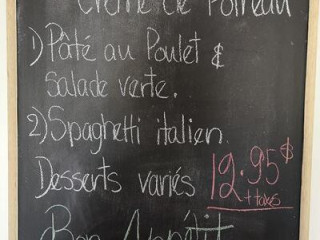 Crème de Poireau
1) Pâté au Poulet &
Salade verte.
2) Spaghetti italien.
Desserts variés 12.95$
+ taxes
Bon Appétit